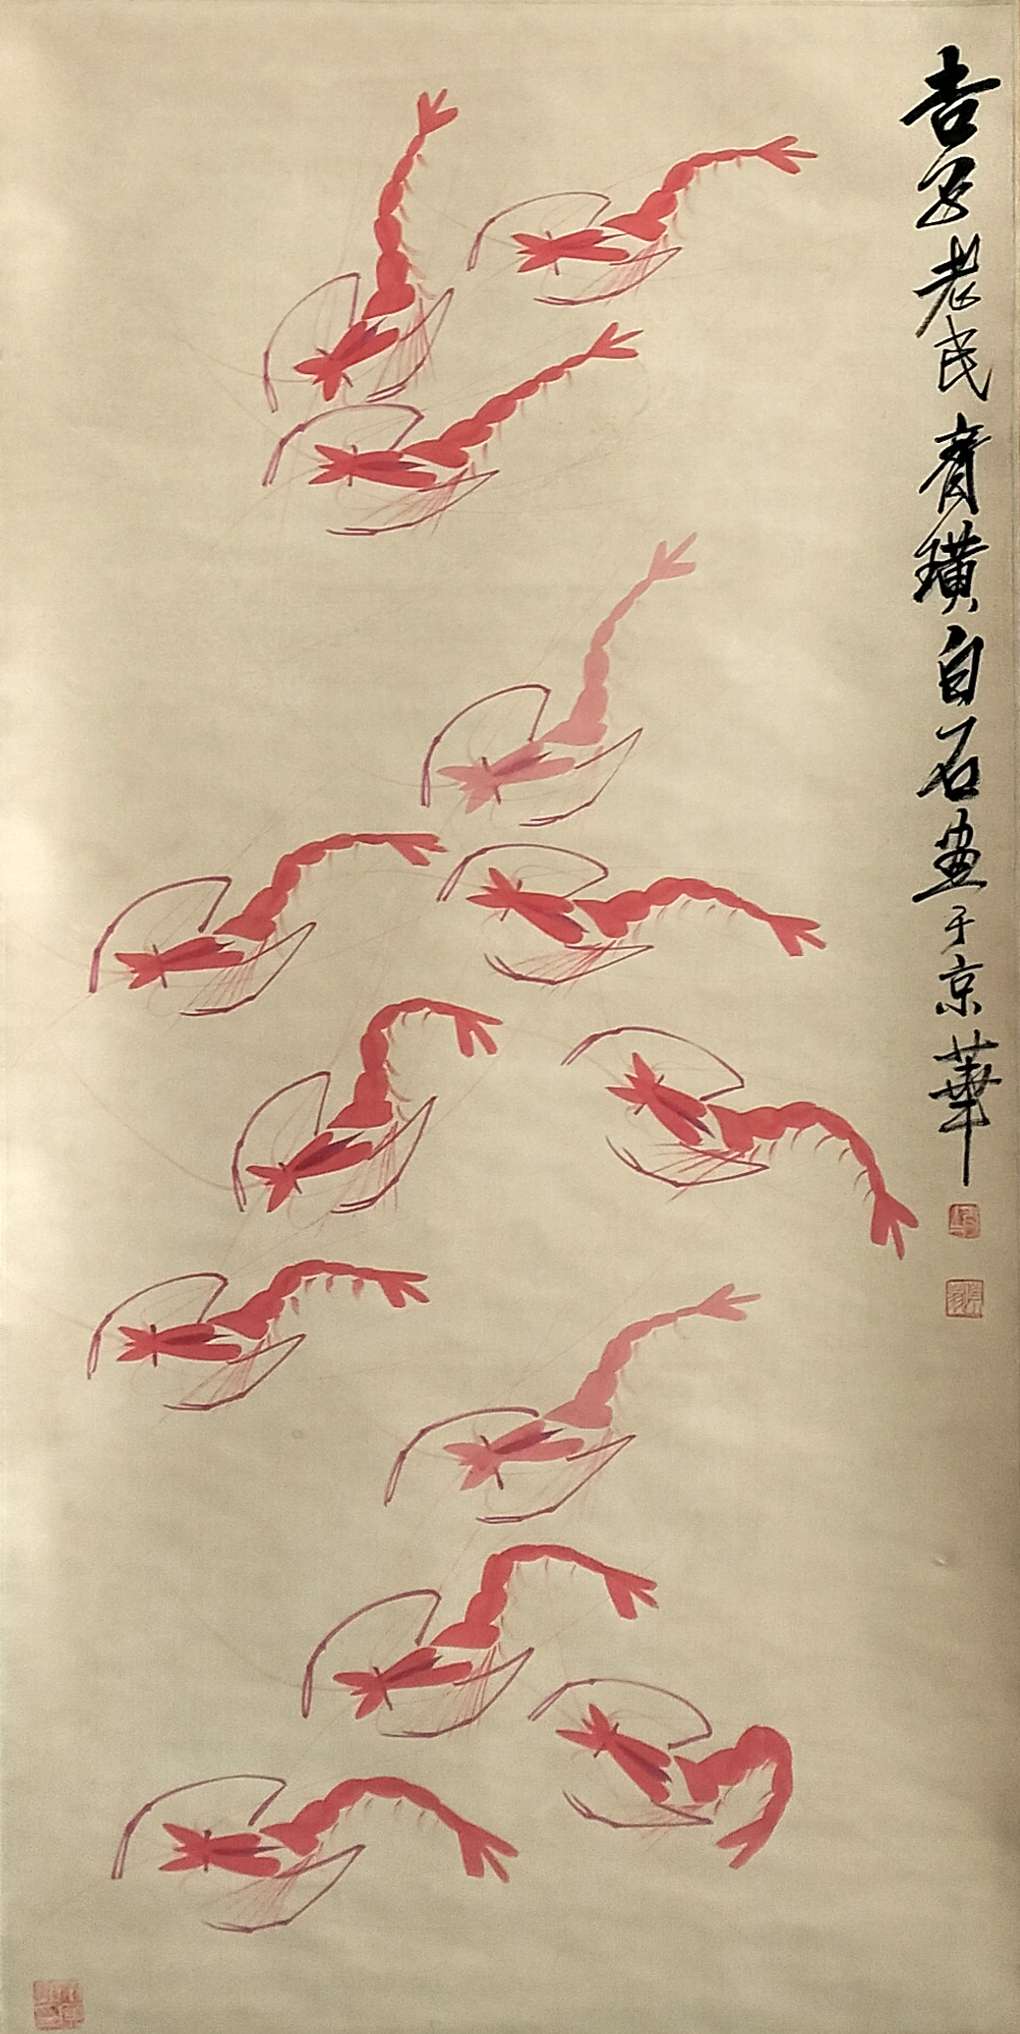 杏子老民齊璜白石畫于京華